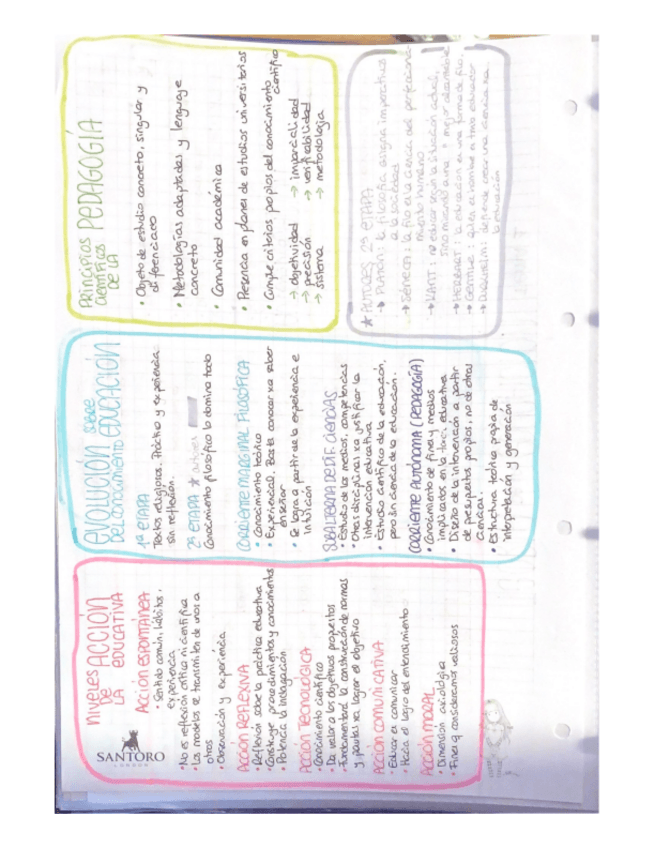 Niveles ACCIÓN
DE
LA EDUCATIVA
ACCIÓN ESPONTÁNEA
• Sentido común, hábitos,
experiencia
• No es reflexión crítica ni científica
• Los modelos se transmiten de unos a
otros
• Observación y experiencia
ACCIÓN REFLEXIVA
• Reflexión sobre la práctica educativa
• Construye procedimientos y conocimientos
• Potencia la indagación
ACCIÓN TECNOLÓGICA
• Conocimiento científico
• Da valor a los objetivos propuestos
• Fundamentará la construcción de normas
y pautas xa lograr el objetivo
ACCIÓN COMUNICATIVA
• Educar es comunicar
• Hacia el logro del entendimiento
ACCIÓN MORAL
• Dimensión axiológica
• Fines q consideramos valiosos
SANTORO
LONDON
EVOLUCIÓN SOBRE
DEL CONOCIMIENTO EDUCACIÓN
1ª ETAPA
Textos religiosos. Práctica y experiencia
sin reflexión.
2ª ETAPA ★ autores
Conocimiento filosófico lo domina todo
CORRIENTE MARGINAL FILOSÓFICA
• Conocimiento teórico
• Experiencial. Basta conocer xa saber
enseñar
• Se logra a partir de la experiencia e
intuición
SUBALTERNA DE DIF. CIENCIAS
• Estudio de los medios, competencias
• Otras disciplinas xa justificar la
intervención educativa
• Estudio científico de la educación,
pero sin ciencia de la educación.
CORRIENTE AUTÓNOMA (PEDAGOGÍA)
• Conocimiento de fines y medios
implicados en la educativa
• Diseño de la intervención a partir
de presupuestos propios, no de otras
ciencias.
• Estructura teórica propia de
interpretación y generación
Principios PEDAGOGÍA
científicos
DE LA
• Objeto de estudio concreto, singular y
diferenciado
• Metodologías adaptadas y lenguaje
concreto
• Comunidad académica
• Presencia en planes de estudios universitarios
• Cumple criterios propios del conocimiento
científico
→ objetividad → imparcialidad
→ precisión → verificabilidad
→ sistema → metodología
★ AUTORES 2ª ETAPA
→ PLATÓN: la filosofía asigna importancia
a la sociedad
→ SÉNECA: la filo es la ciencia del perfecciona-
miento humano
→ KANT: no educar según la situación actual,
sino mirando a una + mejor
→ HERBART: la educación es una forma de filo.
→ GENTILE: quien es hombre es tmb educador
→ DURKHEIM: defiende crear una ciencia xa
la educación